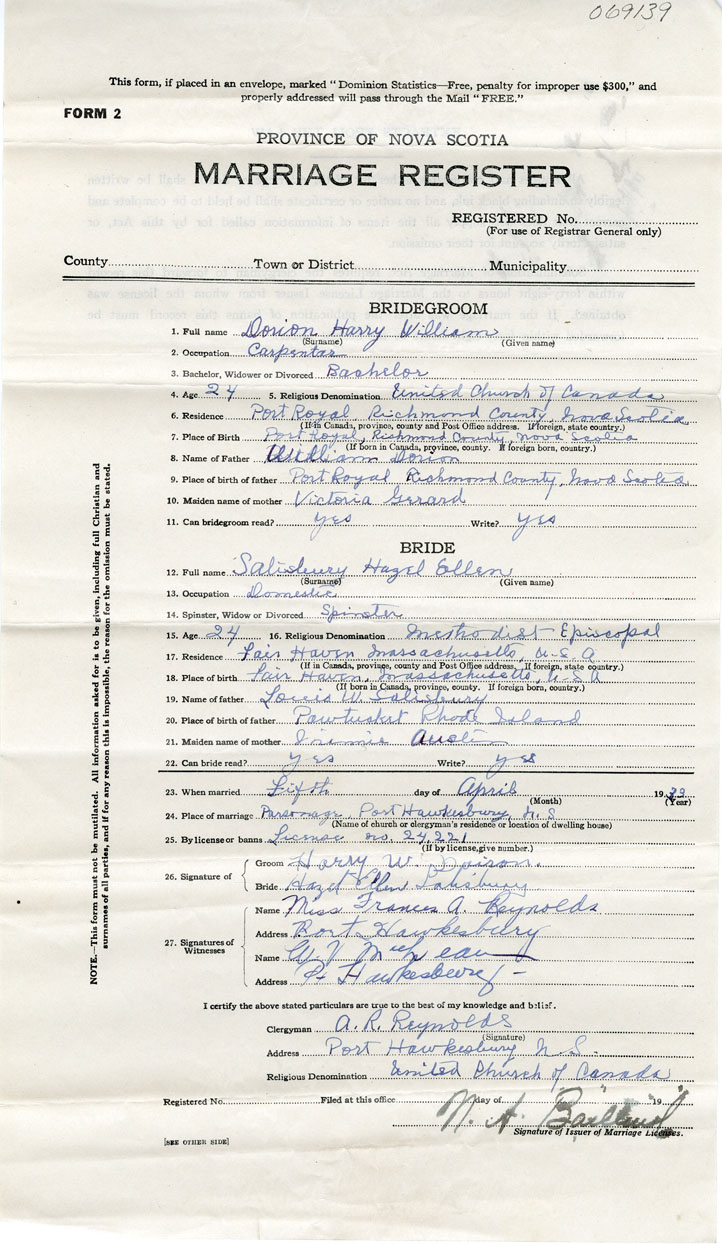 069139
This form, if placed in an envelope, marked "Dominion Statistics—Free, penalty for improper use $300," and
properly addressed will pass through the Mail "FREE."
FORM 2
PROVINCE OF NOVA SCOTIA
MARRIAGE REGISTER
REGISTERED No.
(For use of Registrar General only)
County Town or District Municipality
BRIDEGROOM
1. Full name Dorion Harry William
(Surname) (Given name)
2. Occupation Carpentar
3. Bachelor, Widower or Divorced Bachelor
4. Age 24 5. Religious Denomination United Church of Canada
6. Residence Port Royal Richmond County, Nova Scotia
(If in Canada, province, county and Post Office address. If foreign, state country.)
7. Place of Birth Port Royal, Richmond County, Nova Scotia
(If born in Canada, province, county. If foreign born, country.)
8. Name of Father William Dorion
9. Place of birth of father Port Royal Richmond County, Nova Scotia
10. Maiden name of mother Victoria Gerard
11. Can bridegroom read? yes Write? yes
BRIDE
12. Full name Salisbury Hazel Ellen
(Surname) (Given name)
13. Occupation Domestic
14. Spinster, Widow or Divorced Spinster
15. Age 24 16. Religious Denomination Methodist Episcopal
17. Residence Fair Haven Massachusetts, U.S.A
(If in Canada, province, county and Post Office address, If foreign, state country.)
18. Place of birth Fair Haven, Massachusetts, U.S.A
(If born in Canada, province, county. If foreign born, country.)
19. Name of father Louis W. Salisbury
20. Place of birth of father Pawtusket Rhode Island
21. Maiden name of mother Austin
22. Can bride read? yes Write? yes
23. When married Fifth day of April 19
(Month) (Year)
24. Place of marriage Parsonage, Port Hawkesbury, N.S
(Name of church or clergyman's residence or location of dwelling house)
25. By license or banns License no. 24,221
(If by license, give number.)
26. Signature of
Groom Harry W. Doison.
Bride Hazel Ellen Salisbury
27. Signatures of Witnesses
Name Miss Frances A. Reynolds
Address Port Hawkesbury
Name
Address Pt Hawkesbury
I certify the above stated particulars are true to the best of my knowledge and belief.
Clergyman A. R. Reynolds
(Signature)
Address Port Hawkesbury N.S.
Religious Denomination United Church of Canada
Registered No. Filed at this office day of 19
N. A.
Signature of Issuer of Marriage Licenses.
[SEE OTHER SIDE]
NOTE.—This form must not be mutilated. All information asked for is to be given, including full Christian and
surnames of all parties, and if for any reason this is impossible, the reason for the omission must be stated.